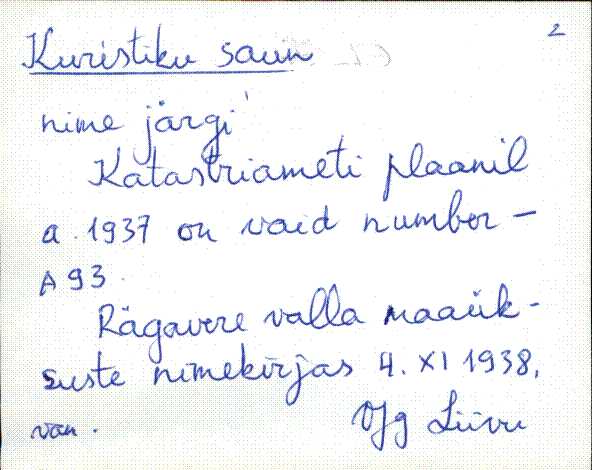 2
Kuristiku saun
nime järgi
Katastriameti plaanil
a. 1937 on vaid number -
A 93.
Rägavere valla maaük-
suste nimekirjas 4. XI 1938.
van.
Liivu